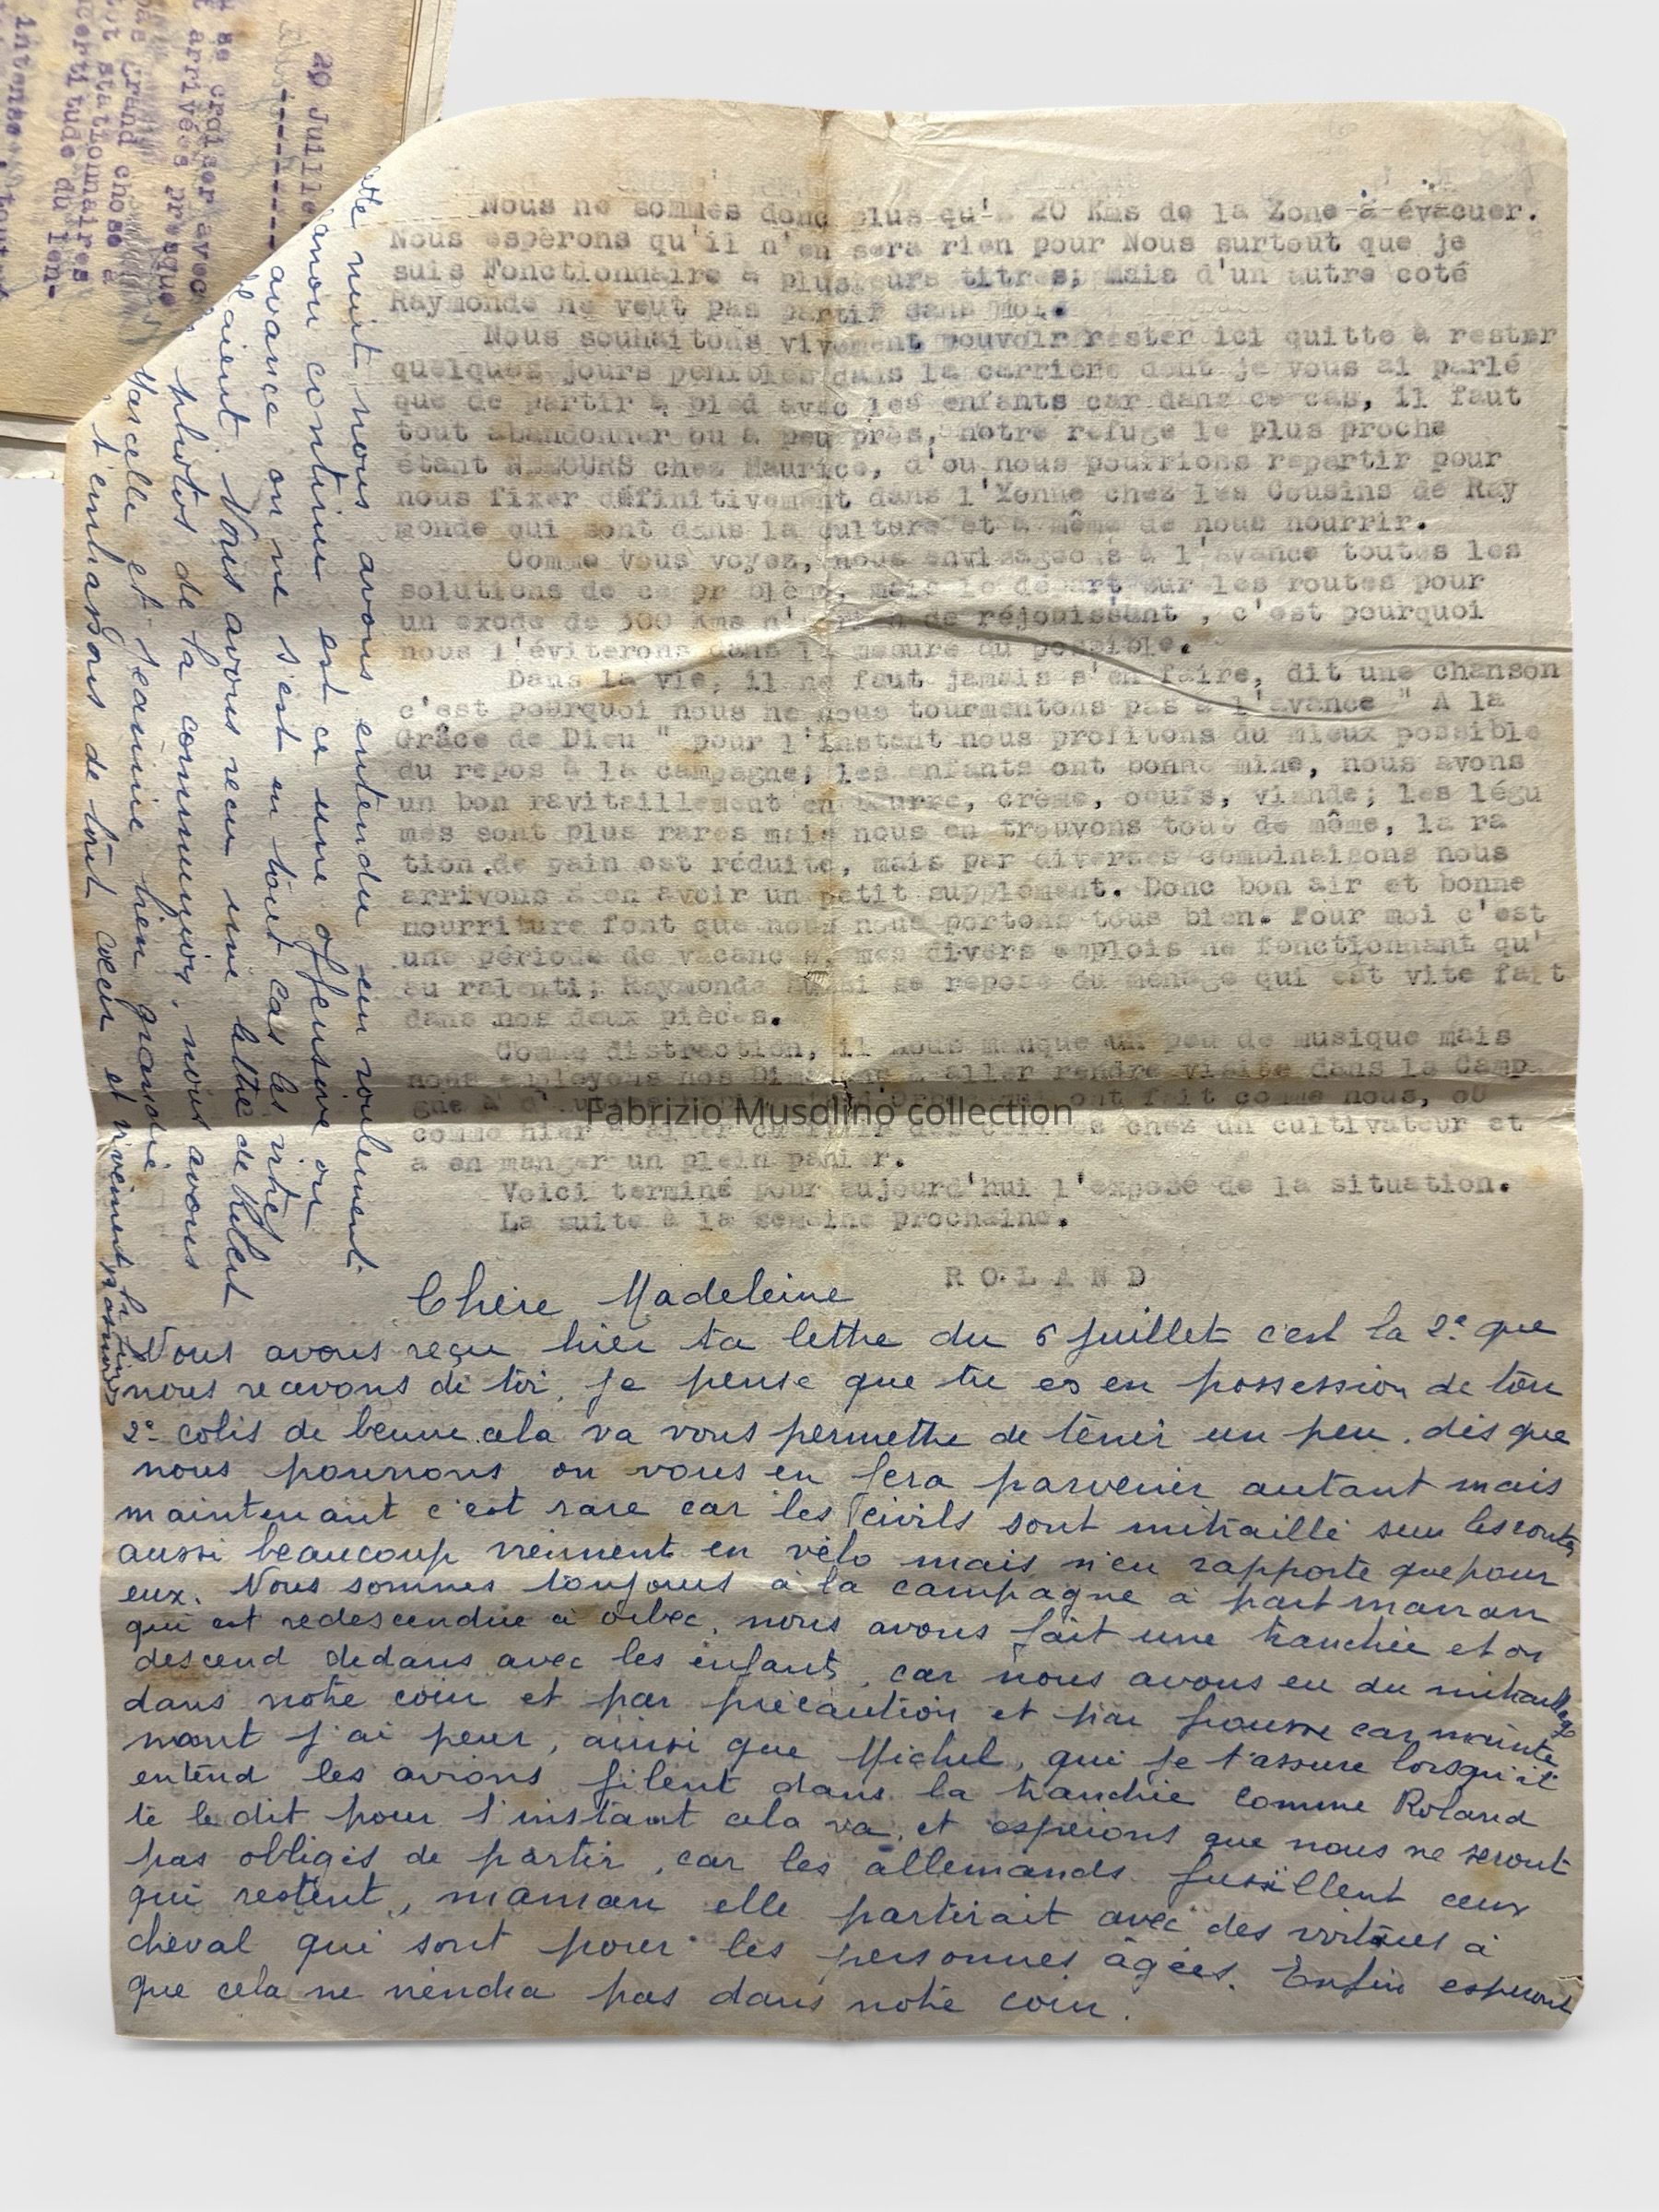 20 Juille
se croiser avec
t arrivées presque
pas grand chose à
tot stationnaires
certitude du len-
intense, tout
Nous ne sommes donc plus qu'à 20 Kms de la Zone à évacuer.
Nous espérons qu'il n'en sera rien pour Nous surtout que je
suis Fonctionnaire à plusieurs titres; mais d'un autre coté
Raymonde ne veut pas partir sans Moi.
Nous souhaitons vivement pouvoir rester ici quitte à rester
quelques jours penibles dans la carrière dont je vous ai parlé
que de partir à pied avec les enfants car dans ce cas, il faut
tout abandonner ou à peu près, notre refuge le plus proche
étant NEMOURS chez Maurice, d'ou nous pourrions repartir pour
nous fixer définitivement dans l'Yonne chez les Cousins de Ray
monde qui sont dans la culture et à même de nous nourrir.
Comme vous voyez, nous envisageons à l'avance toutes les
solutions de ce problème, mais le départ sur les routes pour
un exode de 300 Kms n'a rien de réjouissant , c'est pourquoi
nous l'éviterons dans la mesure du possible.
Dans la vie, il ne faut jamais s'en faire, dit une chanson
c'est pourquoi nous ne nous tourmentons pas à l'avance " A la
Grâce de Dieu " pour l'instant nous profitons du mieux possible
du repos à la campagne; les enfants ont bonne mine, nous avons
un bon ravitaillement en beurre, crème, oeufs, viande; les légu
mes sont plus rares mais nous en trouvons tout de même, la ra
tion de pain est réduite, mais par diverses combinaisons nous
arrivons à en avoir un petit supplément. Donc bon air et bonne
nourriture font que nous nous portons tous bien. Pour moi c'est
une période de vacances, mes divers emplois ne fonctionnant qu'
au ralenti; Raymonde aussi se repose du ménage qui est vite fait
dans nos deux pièces.
Comme distraction, il nous manque un peu de musique mais
nous employons nos Dimanches à aller rendre visite dans la Camp
gne à d' ont fait comme nous, ou
comme hier à aller cueillir des cerises chez un cultivateur et
a en manger un plein panier.
Voici terminé pour aujourd'hui l'exposé de la situation.
La suite à la semaine prochaine.
R O L A N D
Fabrizio Musolino collection
Chère Madeleine
Nous avons reçu hier ta lettre du 6 juillet c'est la 2e que
nous recevons de toi, je pense que tu es en possession de ton
2e colis de beurre cela va vous permettre de tenir un peu. dès que
nous pourrons on vous en fera parvenir autant mais
maintenant c'est rare car les civils sont mitraillé sur les routes
aussi beaucoup viennent en vélo mais n'en rapporte que pour
eux. Nous sommes toujours à la campagne à part maman
qui est redescendue à orbec, nous avons fait une tranchée et on
descend dedans avec les enfants, car nous avons eu du mitraillage
dans notre coin et par précaution et par frousse car mainte
nant j'ai peur, ainsi que Michel, qui je t'assure lorsqu'il
entend les avions filent dans la tranchée comme Roland
te le dit pour l'instant cela va, et espérons que nous ne seront
pas obligés de partir, car les allemands fusillent ceux
qui restent, maman elle partirait avec des voitures à
cheval qui sont pour les personnes âgées. Enfin esperont
que cela ne viendra pas dans notre coin.
nuit nous avons entendu un roulement
canon continu est ce une offensive ou
avance on ne s'est en tout cas les vitres
Nous avons recu une lettre de
photos de la communion, nous avons
Marcelle et Jeannine bien grandie
t'embrassons de tout coeur et vivement